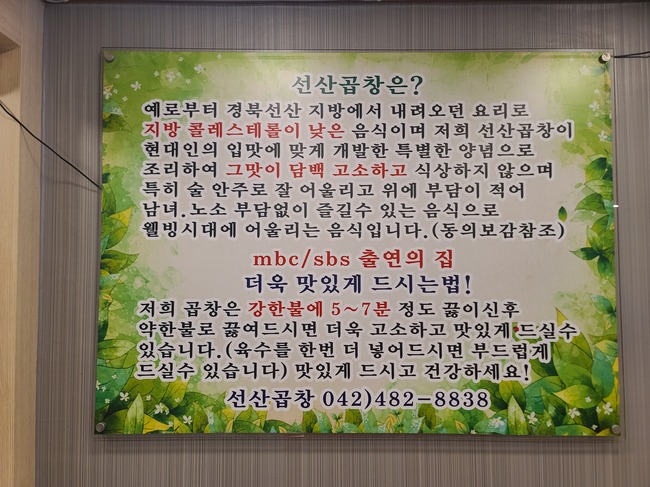 선산곱창은?
예로부터 경북선산 지방에서 내려오던 요리로
지방 콜레스테롤이 낮은 음식이며 저희 선산곱창이
현대인의 입맛에 맞게 개발한 특별한 양념으로
조리하여 그맛이 담백 고소하고 식상하지 않으며
특히 술 안주로 잘 어울리고 위에 부담이 적어
남녀.노소 부담없이 즐길수 있는 음식으로
웰빙시대에 어울리는 음식입니다.(동의보감참조)
mbc/sbs 출연의 집
더욱 맛있게 드시는법!
저희 곱창은 강한불에 5~7분 정도 끓이신후
약한불로 끓여드시면 더욱 고소하고 맛있게 드실수
있습니다.(육수를 한번 더 넣어드시면 부드럽게
드실수 있습니다) 맛있게 드시고 건강하세요!
선산곱창 042)482-8838